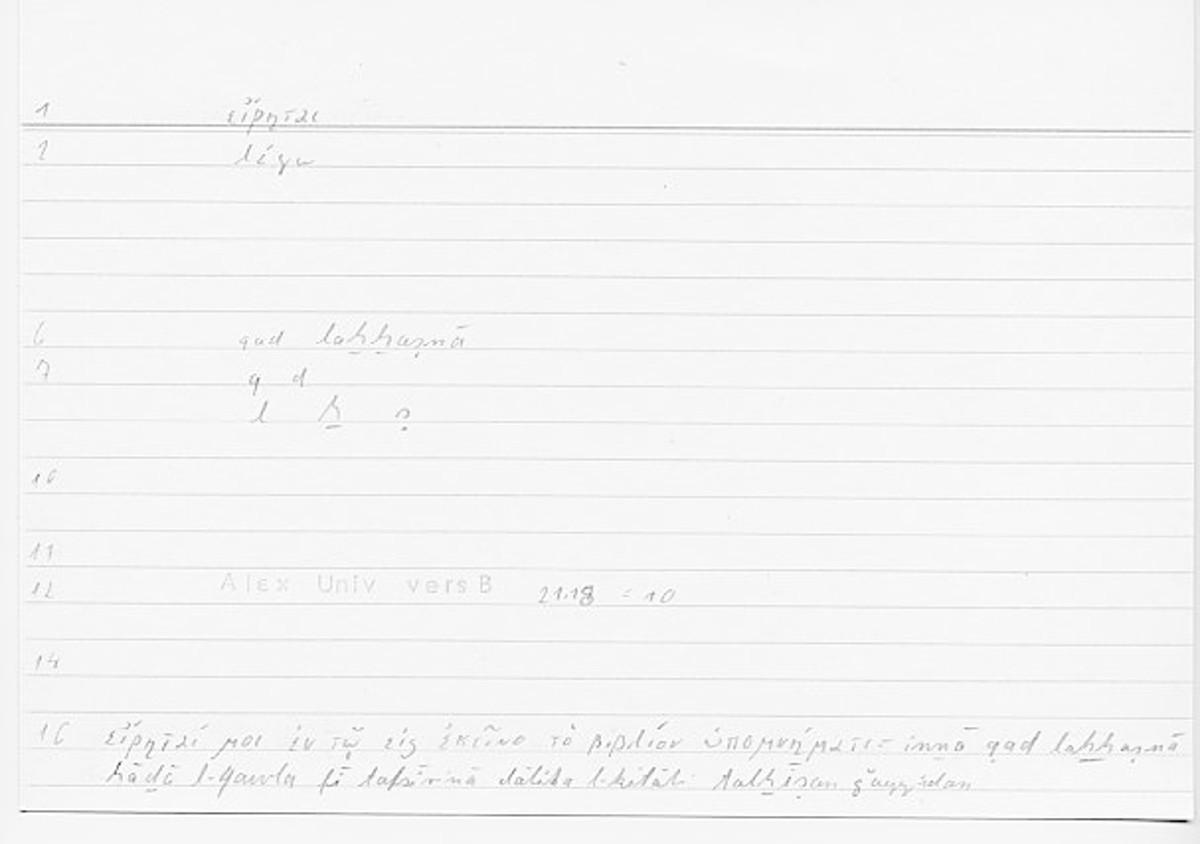 1 εἴρηται
2 λέγω
6 qad laḫḫaṣnā
7 q d
l ḫ ṣ
10
11
12 Alex Univ vers B 21.18 = 10
14
16 εἴρηταί μοι ἐν τῷ εἰς ἐκεῖνο τὸ βιβλίον ὑπομνήματι = innā qad laḫḫaṣnā
hāḏā l-qawla fī tafsīrinā ḏālika l-kitāb talḫīṣan ǧayyidan